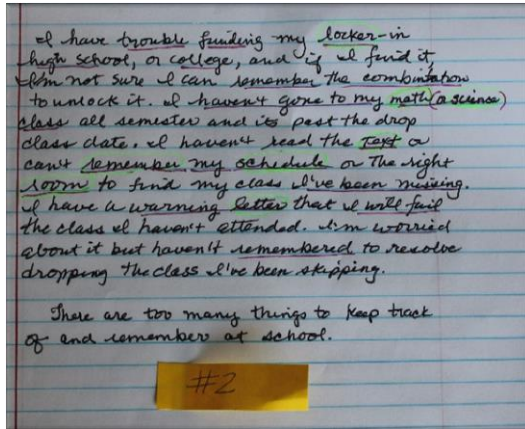 I have trouble finding my locker-in
high school, or college, and if I find it,
I'm not sure I can remember the combination
to unlock it. I haven't gone to my math (a science)
class all semester and its past the drop
class date. I haven't read the text or
can't remember my schedule or the right
room to find my class I've been missing.
I have a warning letter that I will fail
the class I haven't attended. I'm worried
about it but haven't remembered to resolve
dropping the class I've been skipping.
There are too many things to keep track
of and remember at school.
#2